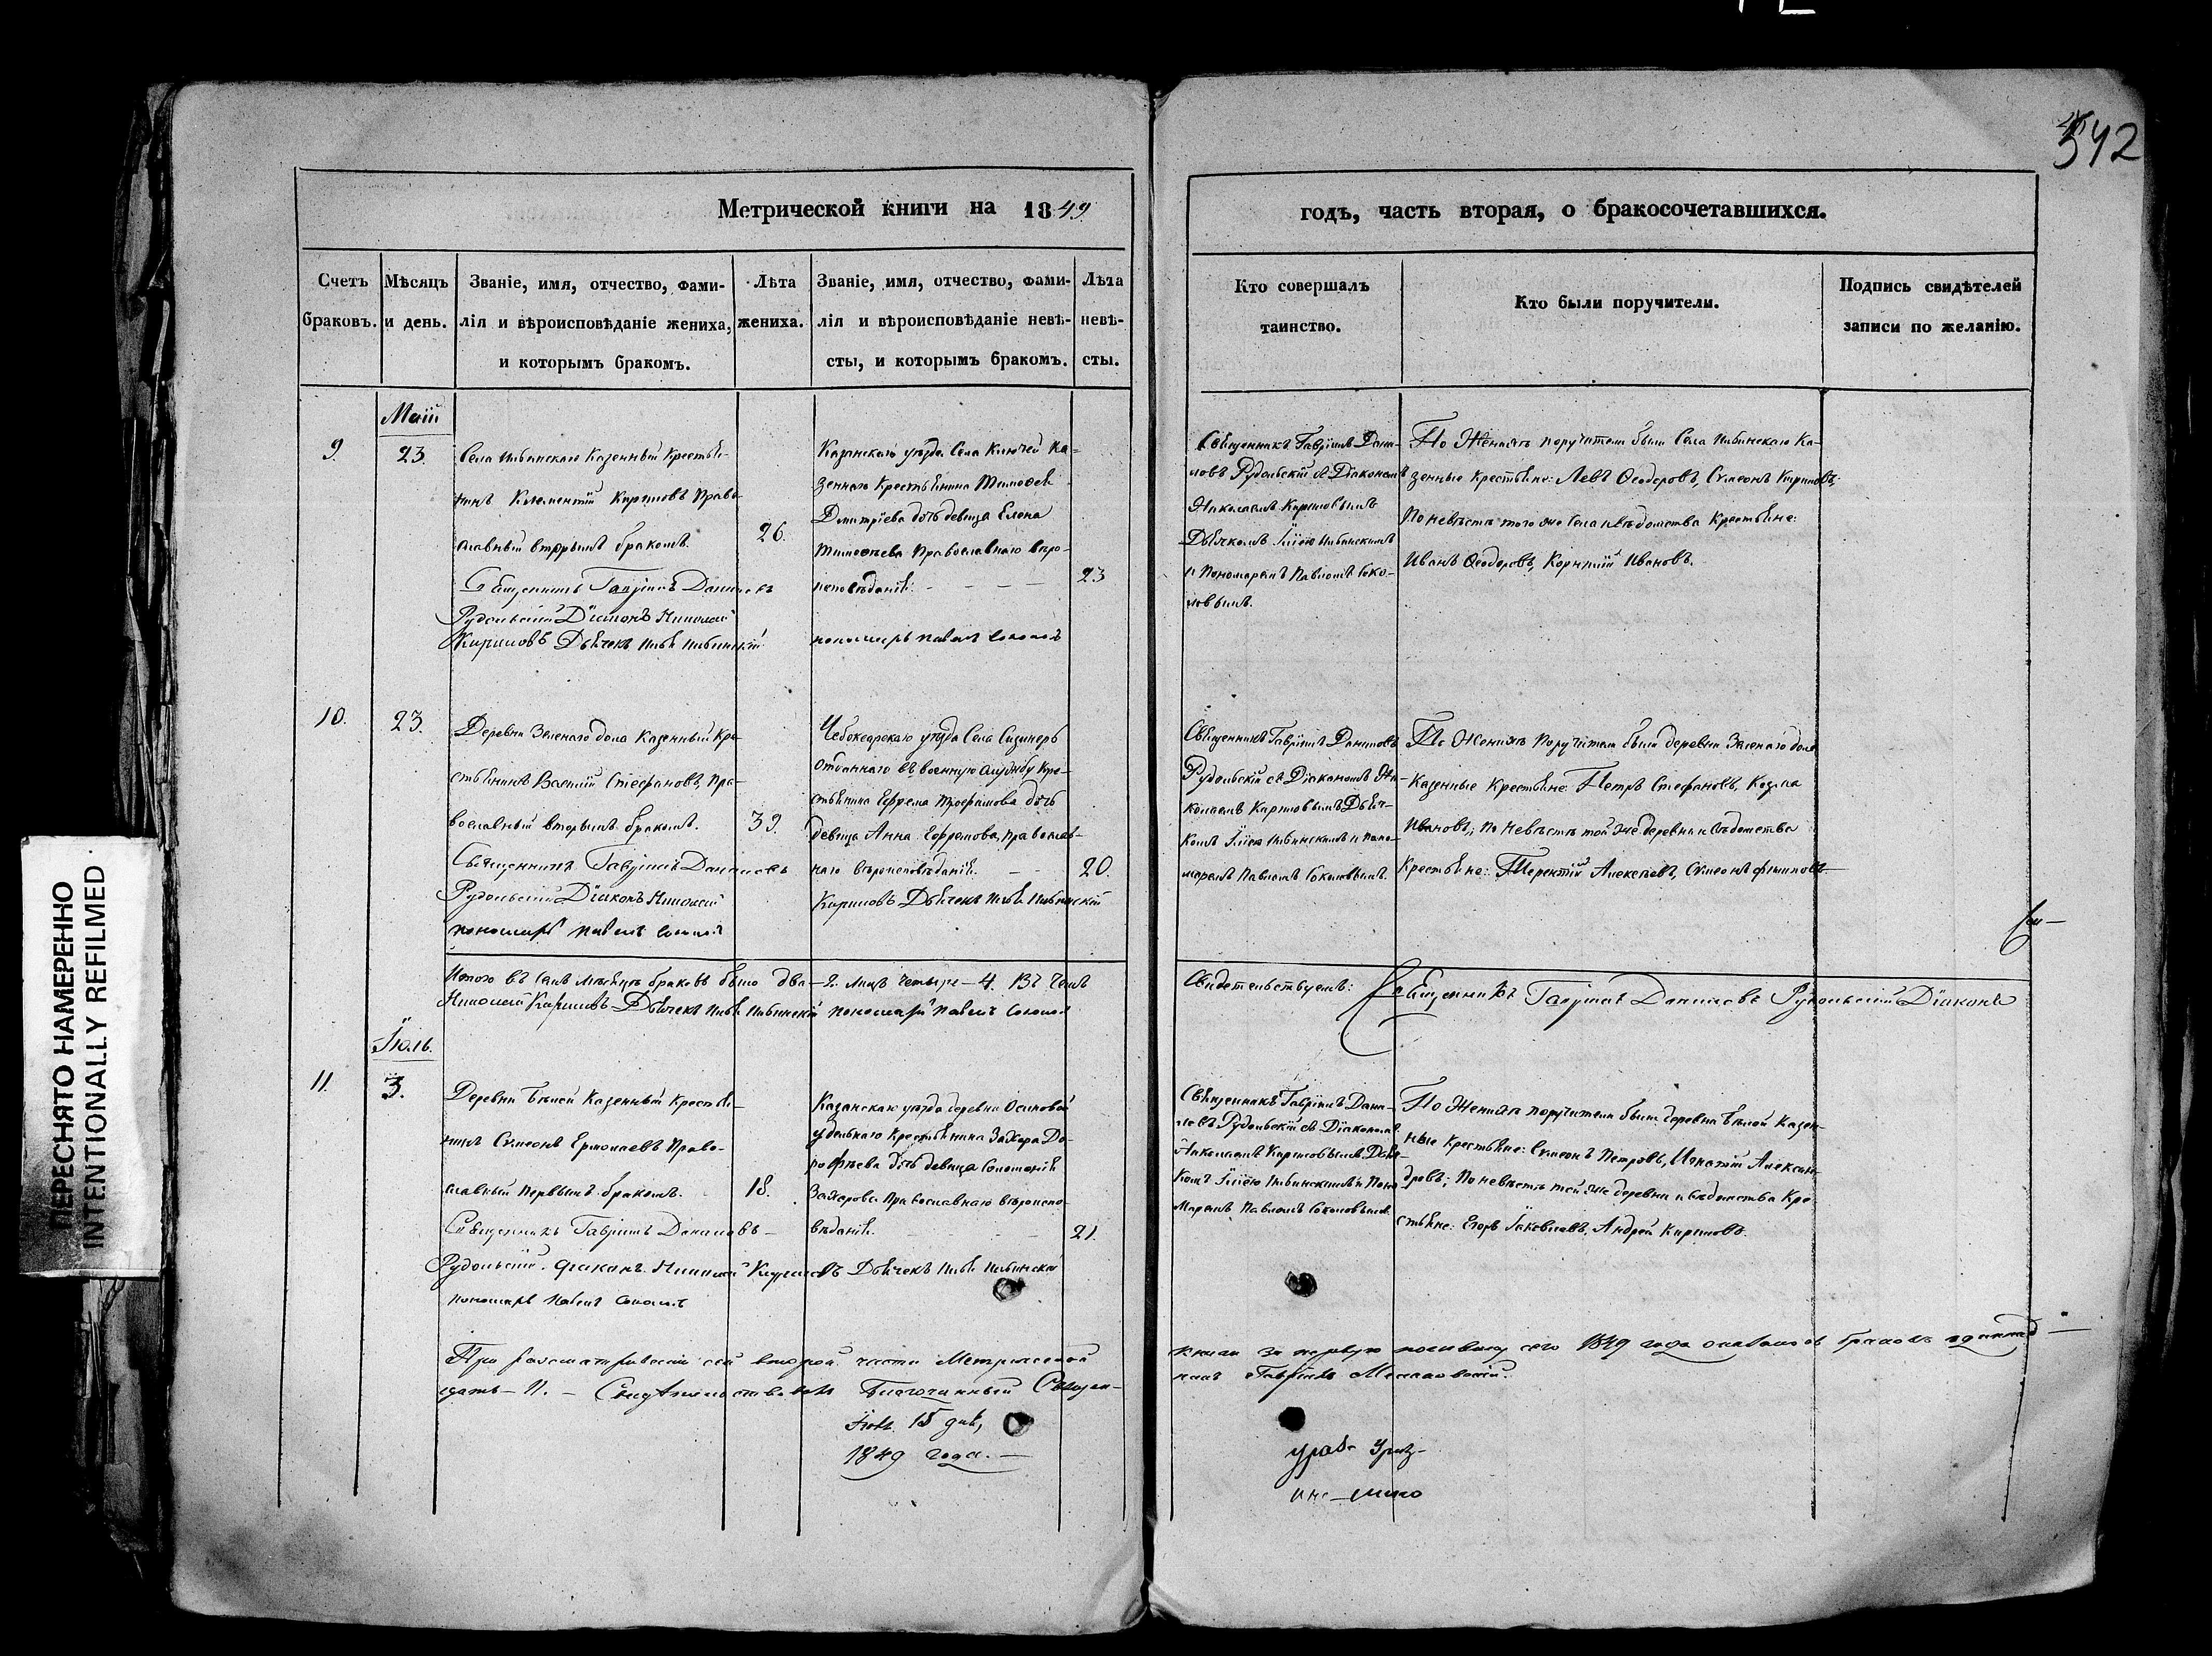 542
Метрической книги на 1849
годъ, часть вторая, о бракосочетавшихся.
Счетъ браковъ.
Мѣсяцъ и день.
Званіе, имя, отчество, фами-
лія и вѣроисповѣданіе жениха,
и которымъ бракомъ.
Лѣта
жениха.
Званіе, имя, отчество, фами-
лія и вѣроисповѣданіе невѣ-
сты, и которымъ бракомъ.
Лѣта
невѣ-
сты.
Кто совершалъ
таинство.
Кто были поручители.
Подпись свидѣтелей
записи по желанію.
Маій
9.
23.
Села Казенный Крестья-
нинъ Климентій Кириловъ Право-
славный вторымъ бракомъ.
26.
Священникъ Гавріилъ Даниловъ
Рудольскій Діаконъ Николай
Кириловъ Дьячекъ
Казанскаго уѣзда Села Ключей Ка-
зеннаго Крестьянина Тимофея
Димитріева дочь девица Елена
Тимофеева Православнаго вѣро-
исповѣданія. — — —
23
пономарь Павелъ Соколовъ
Священникъ Гавріилъ Дани-
ловъ Рудольскій съ Діакономъ
Николаемъ Кириловымъ
Дьячкомъ Іліею
и Пономаремъ Павломъ Соко-
ловымъ.
По Женихѣ поручители были Села Ка-
зенные крестьяне: Левъ Ѳеодоровъ, Сѵмеонъ Кириловъ;
По невѣстѣ того же Села и вѣдомства Крестьяне:
Иванъ Ѳеодоровъ, Корнилій Ивановъ.
10.
23.
Деревни Зеленаго дола Казенный Кре-
стьянинъ Василій Стефановъ, Пра-
вославный вторымъ бракомъ.
39.
Священникъ Гавріилъ Даниловъ
Рудольскій Діаконъ Николай
пономарь Павелъ Соколовъ
Чебоксарскаго уѣзда Села
отданнаго въ военную службу Кре-
стьянина Ефрема дочь
девица Анна Ефремова, православ-
наго вѣроисповѣданія. — —
20.
Кириловъ Дьячекъ
Священникъ Гавріилъ Даниловъ
Рудольскій съ Діакономъ Ни-
колаемъ Кириловымъ Дьяч-
комъ Іліею и Поно-
маремъ Павломъ Соколовымъ.
По Женихѣ Поручители были деревни Зеленаго дола
Казенные Крестьяне: Петръ Стефановъ, Козма
Ивановъ; по Невѣстѣ той же деревни и вѣдомства
Крестьяне: Терентій Алексѣевъ, Сѵмеонъ Филиповъ
Итого въ Маѣ мѣсяцѣ браковъ было два — 2. лицъ четыре — 4. Въ чемъ
Свидетельствуемъ: Священникъ Гавріилъ Даниловъ Рудольскій Діаконъ
Николай Кириловъ Дьячекъ пономарь Павелъ Соколовъ
Іюль.
11.
3.
Деревни Бѣлой Казенный Крестья-
нинъ Сѵмеонъ Ермолаевъ Право-
славный первымъ бракомъ.
18.
Священникъ Гавріилъ Даниловъ —
Рудольскій. Діаконъ Николай Кириловъ Дьячекъ
пономарь Павелъ Соколовъ
Казанскаго уѣзда деревни Осиновой
удельнаго Крестьянина Захара До-
рофеева дочь девица Соломонія
Захарова Православнаго вѣроиспо-
вѣданія. — —
21.
Священникъ Гавріилъ Дани-
ловъ Рудольскій съ Діакономъ
Николаемъ Кириловымъ Дьяч-
комъ Іліею и Поно-
маремъ Павломъ Соколовымъ.
По Женихѣ поручители были деревни Бѣлой Казен-
ные Крестьяне: Сѵмеонъ Петровъ, Игнатій Алексан-
дровъ; По невѣстѣ той же деревни и вѣдомства Кре-
стьяне: Егоръ Іаковлевъ, Андрей Кириловъ.
При разсматриваніи сей второй части Метрической
книги за первую половину сего 1849 года оказалось браковъ одиннад-
цать — 11. — Свидѣтельствовалъ Благочинный Священ-
никъ Гавріилъ
Іюля 15 дня,
1849 года. —
ПЕРЕСНЯТО НАМЕРЕННО
INTENTIONALLY REFILMED